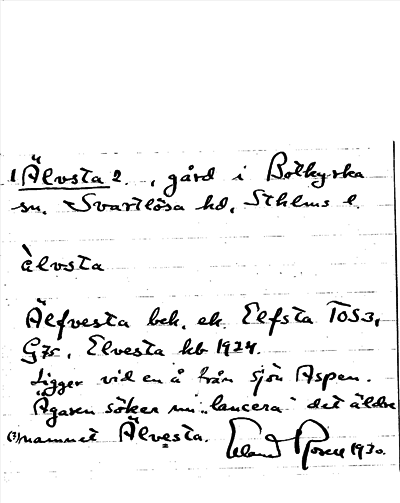 1 Älvsta 2. , gård i Botkyrka
sn. Svartlösa hd, Sthlms l.
älvsta
Älfvesta bek. ek. Elfsta TOS3,
G7r, Elvesta kb 1924.
Ligger vid en å från sjön Aspen.
Ägaren söker nu "lancera" det äldre
(?) namnet Älvesta. 1930.